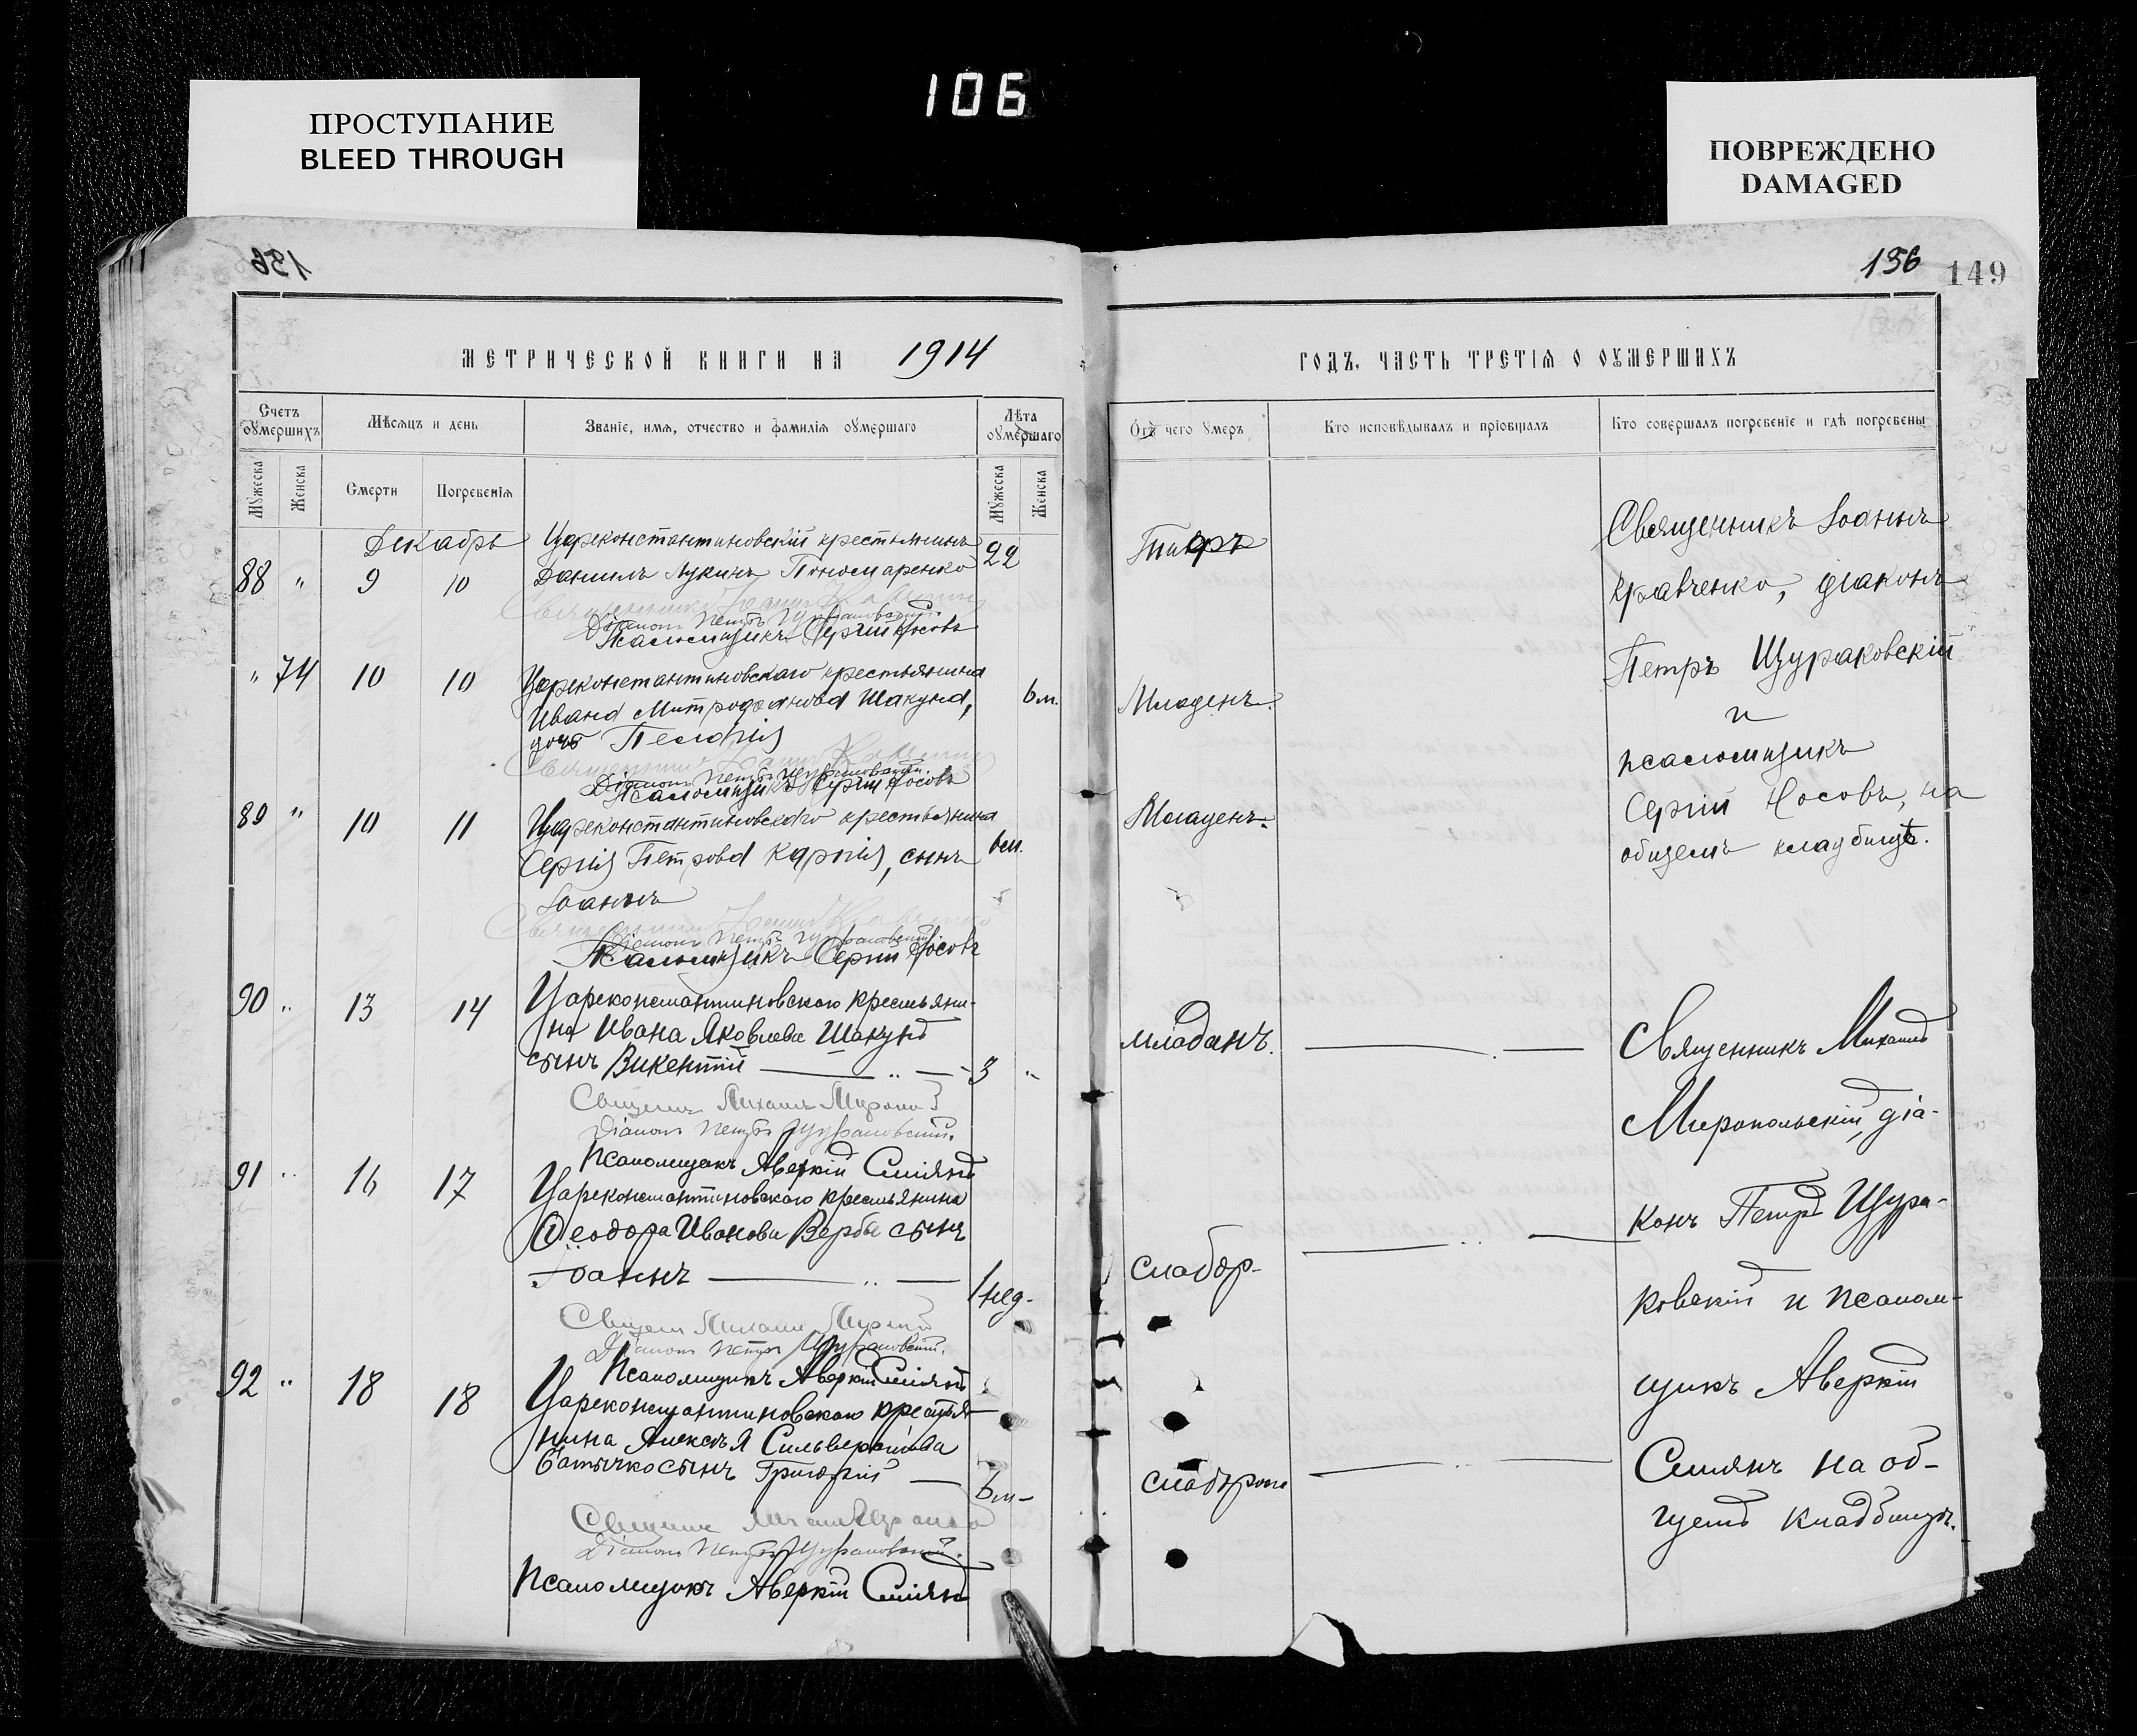 106
ПРОСТУПАНИЕ
BLEED THROUGH
ПОВРЕЖДЕНО
DAMAGED
156
156
149
МЕТРИЧЕСКОЙ КНИГИ НА 1914
ГОДЪ, ЧАСТЬ ТРЕТІЯ О ОУМЕРШИХЪ
Счетъ оумершихъ
Мѣсяцъ и день
Званіе, имя, отчество и фамилія оумершаго
Лѣта оумершаго
Отъ чего умеръ
Кто исповѣдывалъ и пріобщалъ
Кто совершалъ погребеніе и гдѣ погребены
Мужеска
Женска
Смерти
Погребенія
Мужеска
Женска
Декабрь
Цареконстантиновскій крестьянинъ
88 " 9 10 Даніилъ Лукинъ Пономаренко 22
Діаконъ Петръ Щураковскій.
Псаломщикъ Сергій Носовъ
" 74 10 10 Цареконстантиновскаго крестьянина
Ивана Митрофанова Шакуна, 6 м. Младенч.
дочь Пелагія
Священникъ Іоаннъ Кравченко
Діаконъ Петръ Щураковскій.
Псаломщикъ Сергій Носовъ
89 " 10 11 Цареконстантиновскаго крестьянина Младенч.
Сергія Петрова Карпія, сынъ 6 м.
Іоаннъ
Священникъ Іоаннъ Кравченко
Діаконъ Петръ Щураковскій
Псаломщикъ Сергій Носовъ
Священникъ Іоаннъ
Кравченко, діаконъ
Петръ Щураковскій
и
псаломщикъ
Сергій Носовъ, на
общемъ кладбищѣ.
90 " 13 14 Цареконстантиновскаго крестьяни-
на Ивана Яковлева Шакуна
сынъ Викентій — " — 3 "
Діаконъ Петръ Щураковскій.
Псаломщикъ Аверкій
91 " 16 17 Цареконстантиновскаго крестьянина
Ѳеодора Иванова Вербы сынъ
Іоаннъ — " — 1 нед. слабор.
Діаконъ Петръ Щураковскій.
Псаломщикъ Аверкій
92 " 18 18 Цареконстантиновскаго крестья-
нина Алексѣя Сильверстова
сынъ Григорій — 6 м.
Діаконъ Петръ Щураковскій.
Псаломщикъ Аверкій
Священникъ Михаилъ
Миропольскій, діа-
конъ Петръ Щура-
ковскій и псалом-
щикъ Аверкій
на об-
щемъ кладбищѣ.